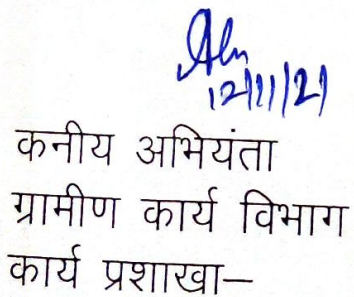 12/11/21
कनीय अभियंता
ग्रामीण कार्य विभाग
कार्य प्रशाखा–